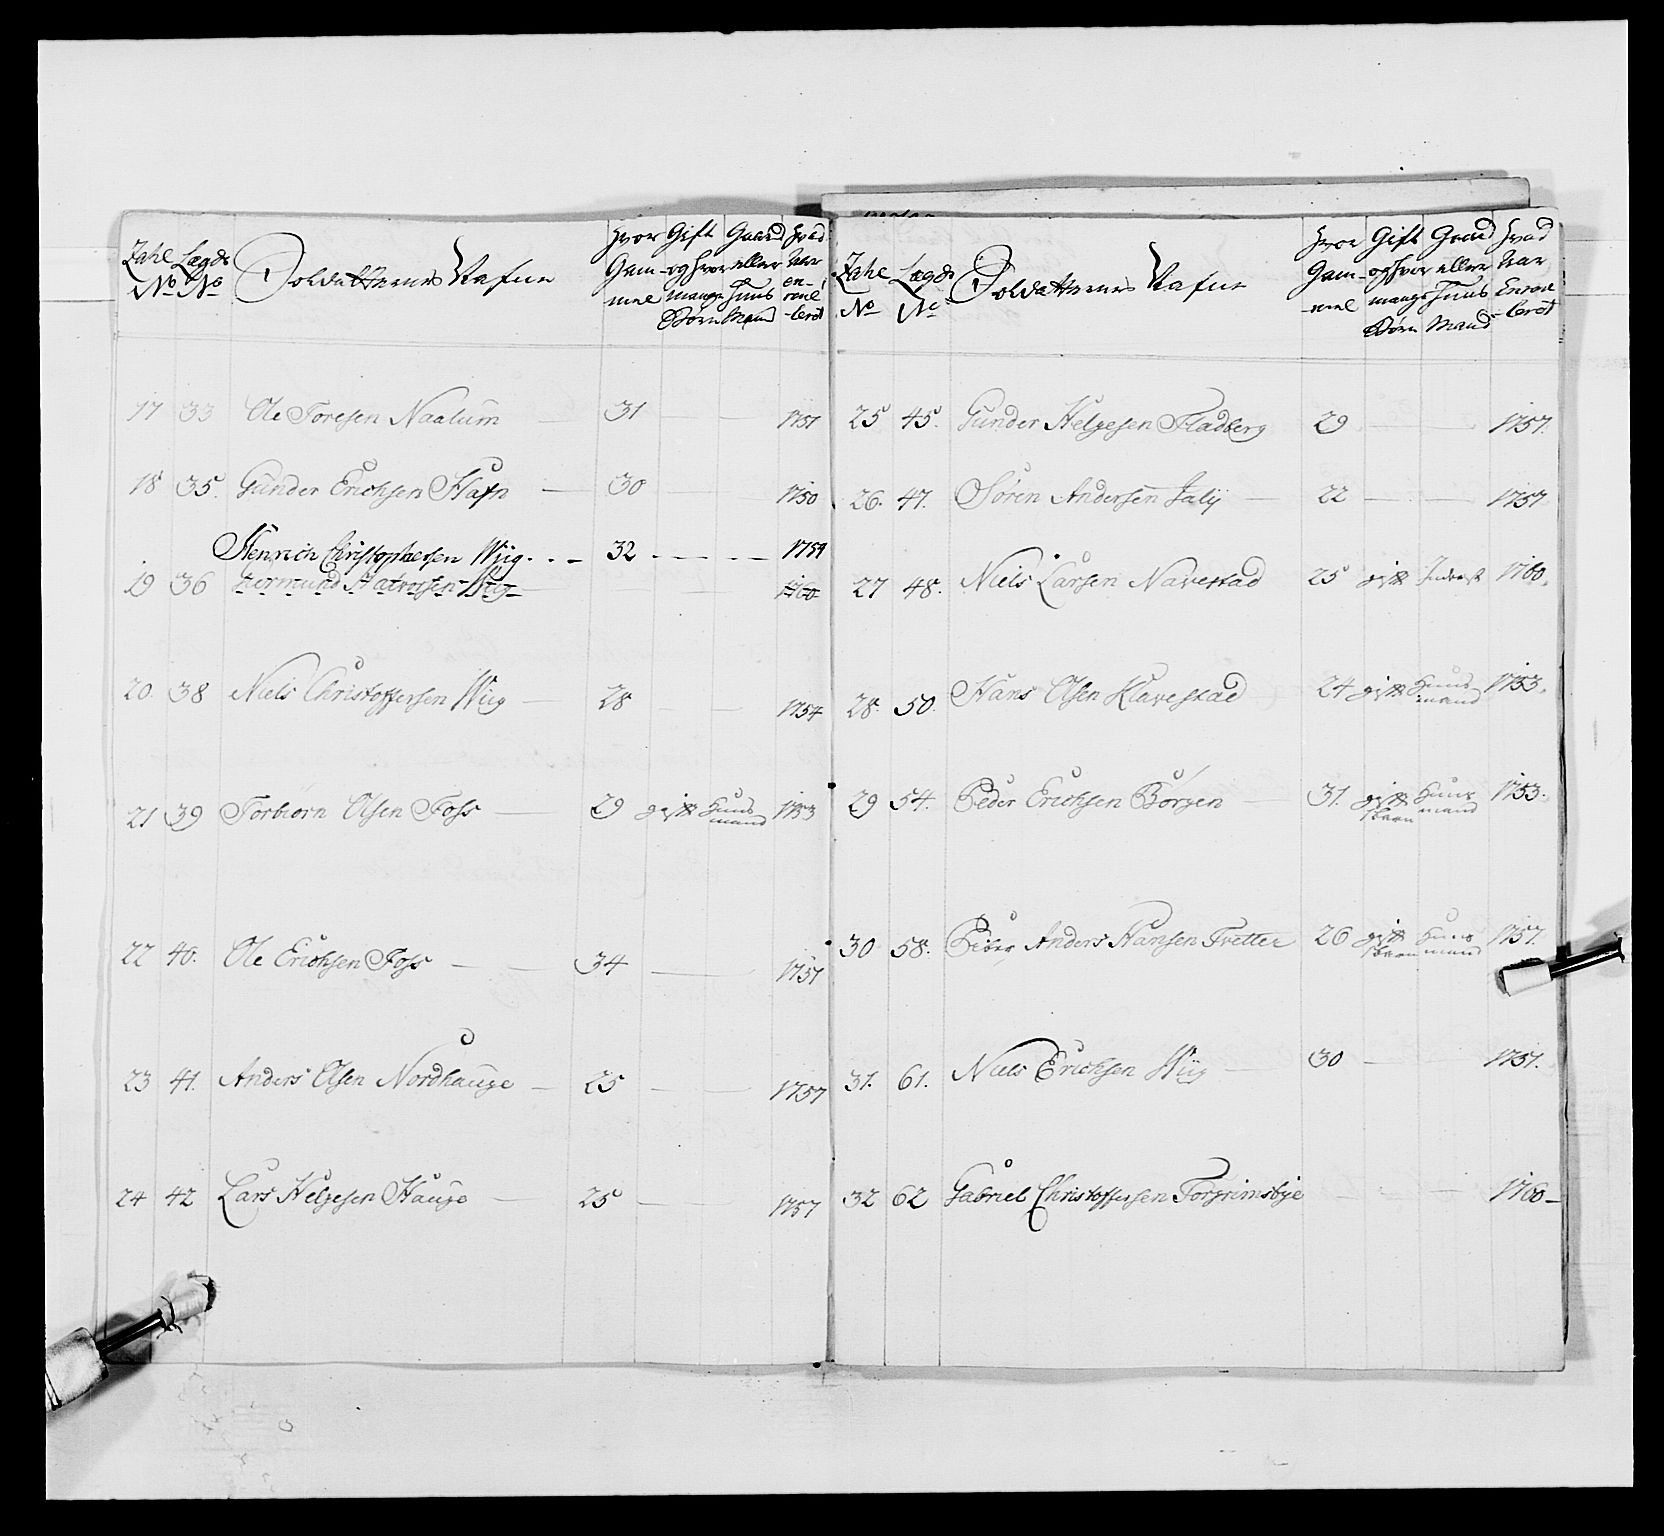 Zahl No
Lægds No
Soldatternes Nafne
Hvor Gam-mel
Gift og hvor mange Børn
Gaard eller Huus Mand
Hvad Aar en-roul-lerét
17 33 Ole Toresen Naalum — 31 — — 1751
18 35. Gunder Erichsen Hafn — 30 — — 1750
Henrich Christophersen Wiig. - - 32 - - - - 1759
19 36 Halvorsen Wiig — — 1760
20. 38 Niels Christoffersen Wiig — 28 — — 1754
21 39 Torbiørn Olsen Foss — 29 gift Huus mand 1753
22 40. Ole Erichsen Foss — — 34 — — 1751
23 41. Anders Olsen Nordhauge — 25 — — 1757
24 42 Lars Helgesen Hauge — 25 — — 1757
Zahl No
Lægds No
Soldatternes Nafne
Hvor Gam-mel
Gift og hvor mange Børn
Gaard eller Huus Mand
Hvad Aar Enroul-lerét
25 45. Gunder Helgesen Fladberg 29 — — 1757.
26. 47. Søren Andersen Jalij — 22 — — 1757
27 48. Niels Larsen Navestad 25 gift Inderst 1760.
28. 50. Hans Olsen Klavestad 24 gift Huus mand 1753.
29 54. Peder Erichsen Børgen — 31. gift 1 barn Huus mand 1753.
30 58. Anders Hansen Tvetter 26 gift 1 barn Huus mand 1757.
31. 61. Niels Erichsen Wiig — 30 — 1751.
32 62 Gabriel Christoffersen Torgrimsbÿe — — 1760 —